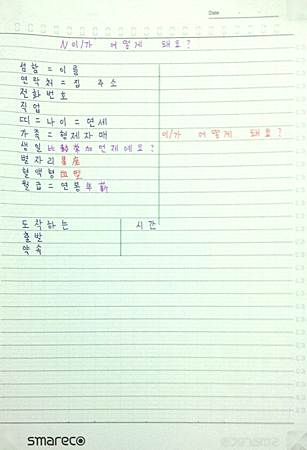 Date
N 이/가 어떻게 돼요?
성함 = 이름
연락처 = 집 주소
전화번호
직업
띠 = 나이 = 연세
가족 = 형제자매 이/가 어떻게 돼요?
생일 比較常加 언제예요?
별자리 星座
혈액형 血型
월급 = 연봉 年薪
도착하는 시간
출발
약속
smareco